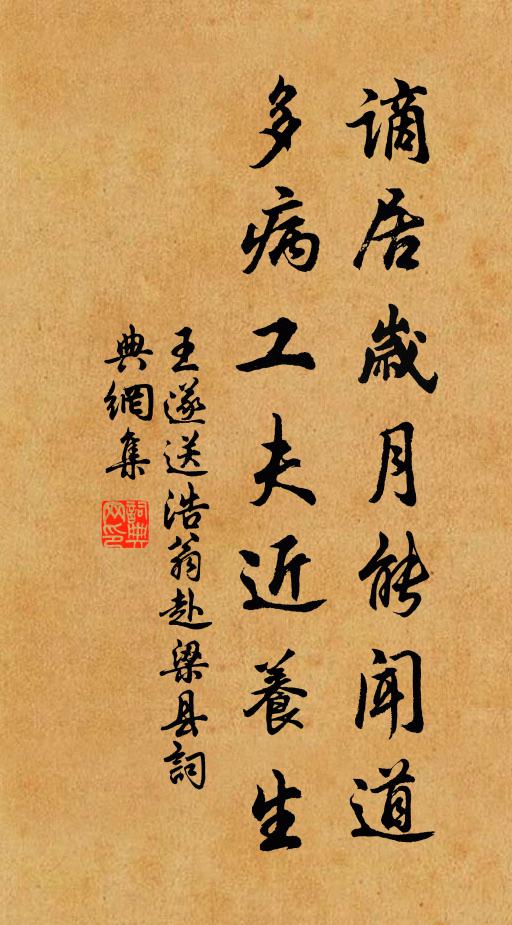 謫居歲月能闻道
多病工夫近養生
王遂送浩翁赴梁县詞
典網集
詞典网印